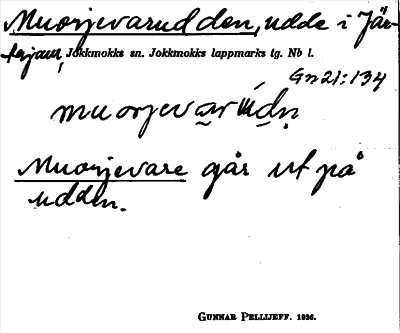 Muorjevarudden, udde i Jär-
tajaur, Jokkmokks sn. Jokkmokks lappmarks tg. Nb l.
Gn 21:134
muorjevarúdn
Muorjevare går ut på
udden.
GUNNAR PELLIJEFF. 1936.